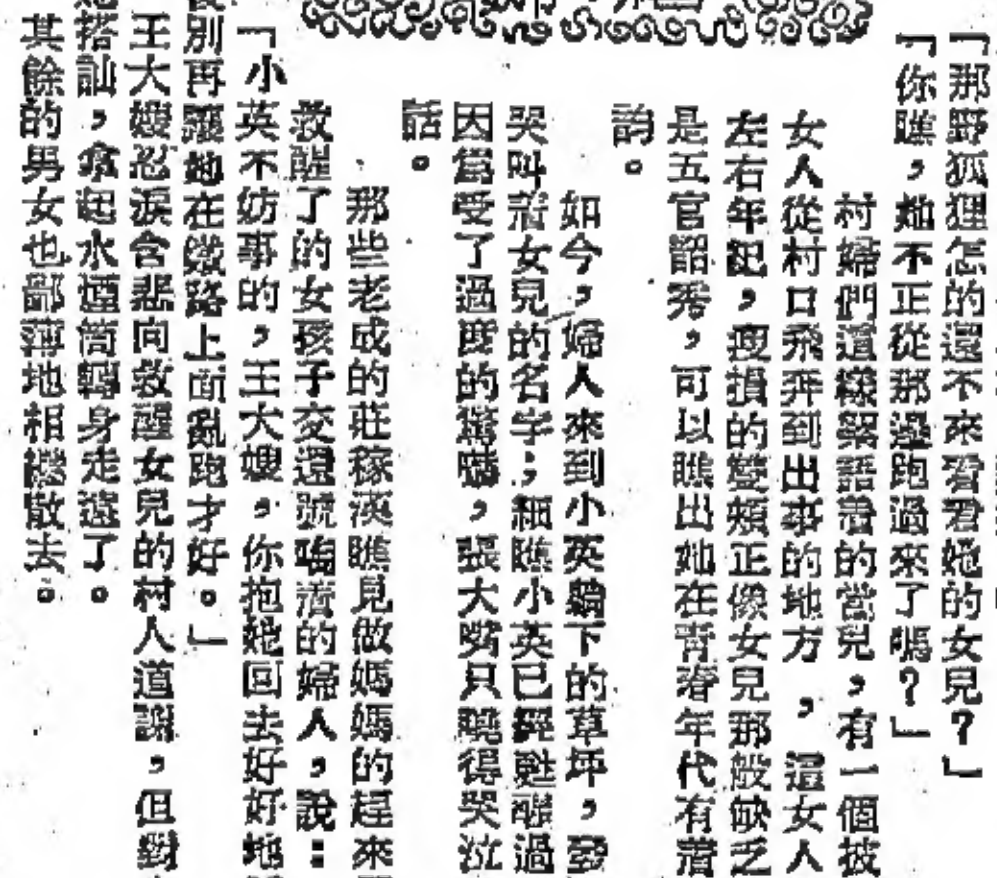 「那野狐狸怎的還不來看看她的女兒？」
「你瞧，她不正從那邊跑過來了嗎？」
村婦們這樣絮語着的當兒，有一個披
女人從村口飛奔到出事的地方，這女人
左右年紀，瘦損的雙頰正像女兒那般缺乏
是五官韶秀，可以瞧出她在青春年代有着
韵。
如今，婦人來到小英躺下的草坪，發
哭叫着女兒的名字；細瞧小英已經甦醒過
因為受了過度的驚嚇，張大嘴只曉得哭泣
話。
那些老成的莊稼漢瞧見做媽媽的趕來
救醒了的女孩子交還號啕着的婦人，說：
「小英不妨事的，王大嫂，你抱她回去好好地
別再讓她在鐵路上面亂跑才好。」
王大嫂忍淚含悲向救醒女兒的村人道謝，但對
搭訕，拿起水煙筒轉身走遠了。
其餘的男女也鄙薄地相繼散去。